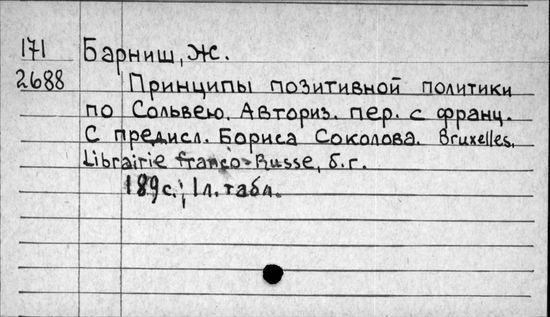 171 Барниш, Ж.
2688 Принципы позитивной политики
по Сольвею. Авториз. пер. с франц.
С предисл. Бориса Соколова. Bruxelles,
Librairie franco-Russe, б.г.
189с.; 1л. табл.